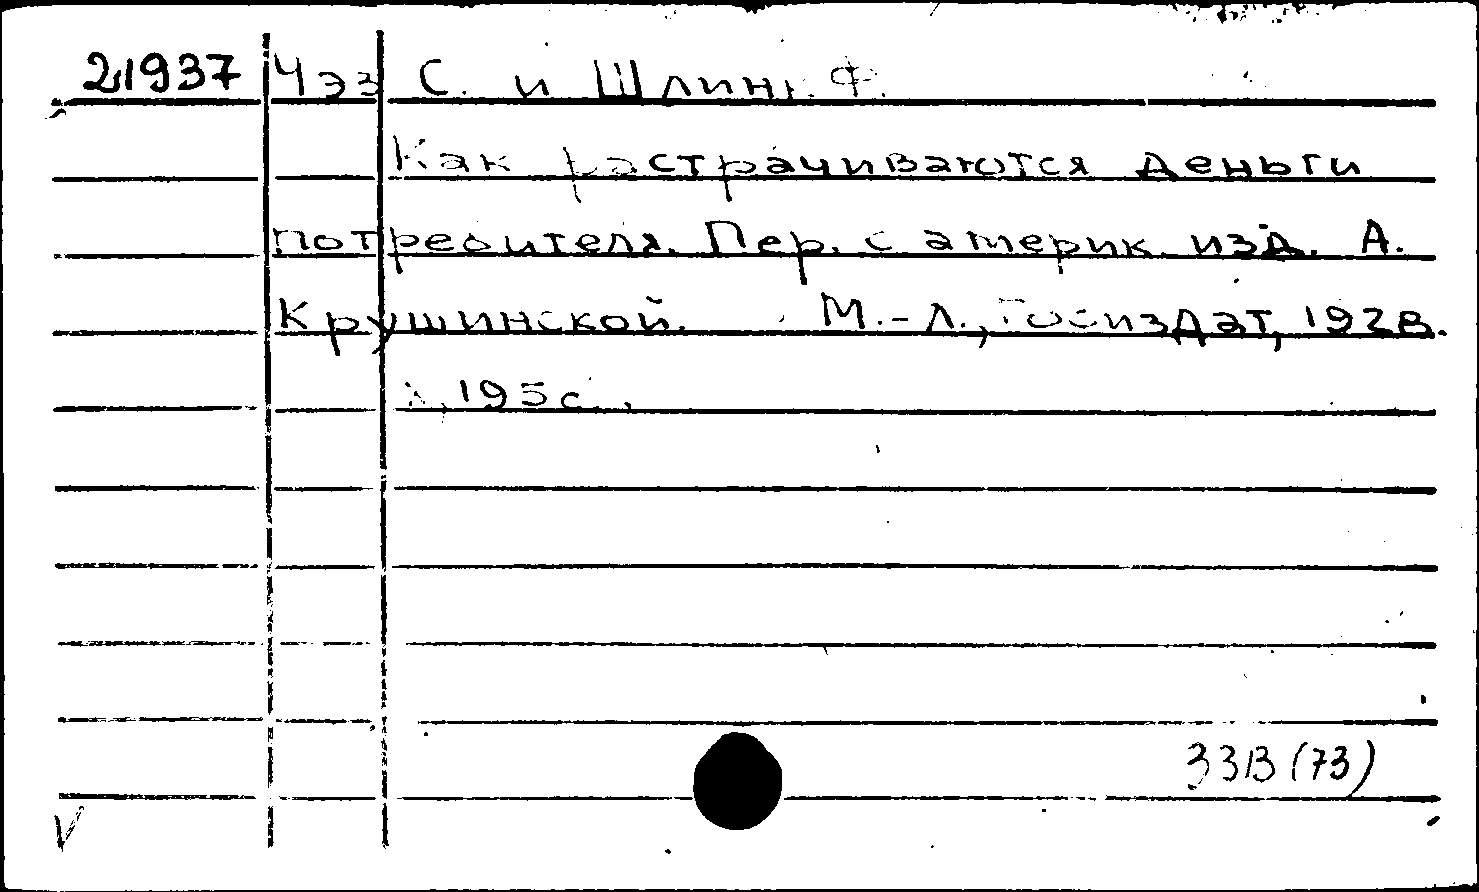 21937 Чэз С. и Шлинк Ф.
Как растрачиваются деньги
потребителя. Пер. с америк. изд. А.
Крушинской. М.-Л., Госиздат, 1928.
195 с.
33И(73)
V